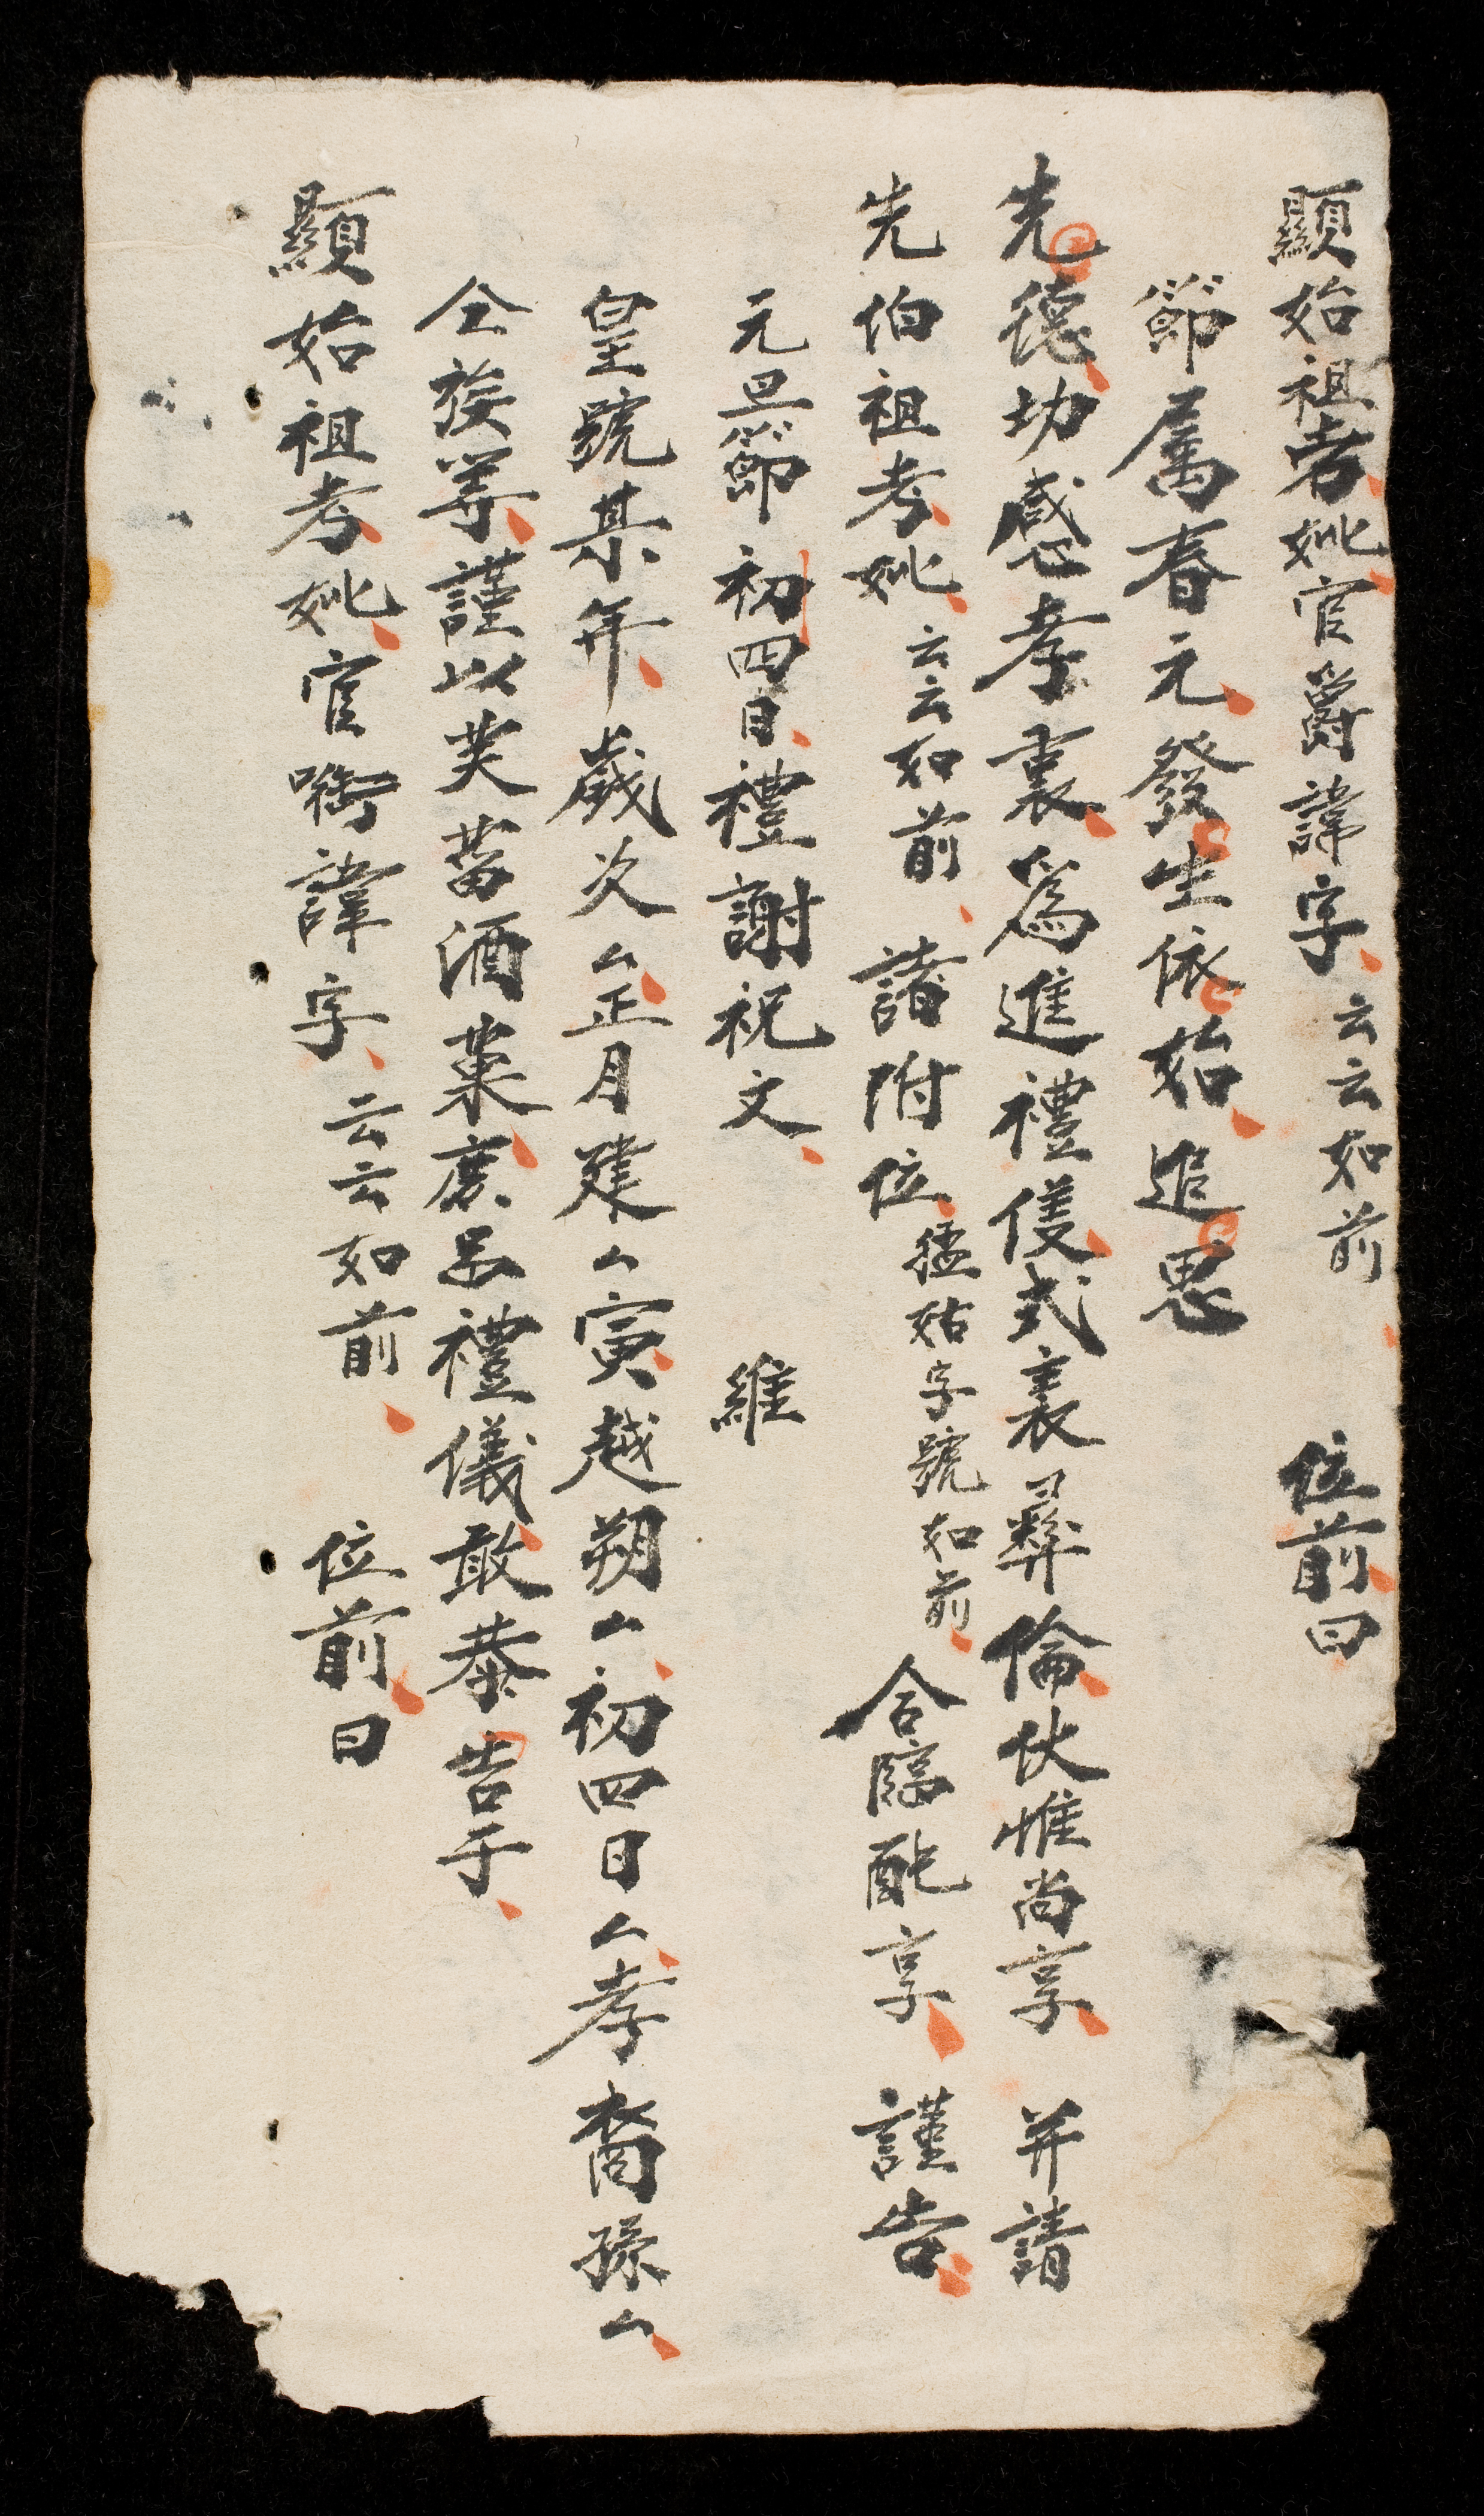 顯始祖考妣官爵諱字云云如前 位前曰
節属春元發生依始追思
先德功感孝裏爲進禮儀式表彛倫伏惟尚享 并請
先伯祖考妣云云如前 諸附位猛姑字號如前合臨配享 謹告
元旦節初四日禮謝祝文 維
皇號某年歲次厶正月建厶寅越朔厶初四日厶孝裔孫厶
仝族等謹以芙菑酒菓庶品禮儀敢恭告于
顯始祖考妣官啣諱字云云如前 位前曰